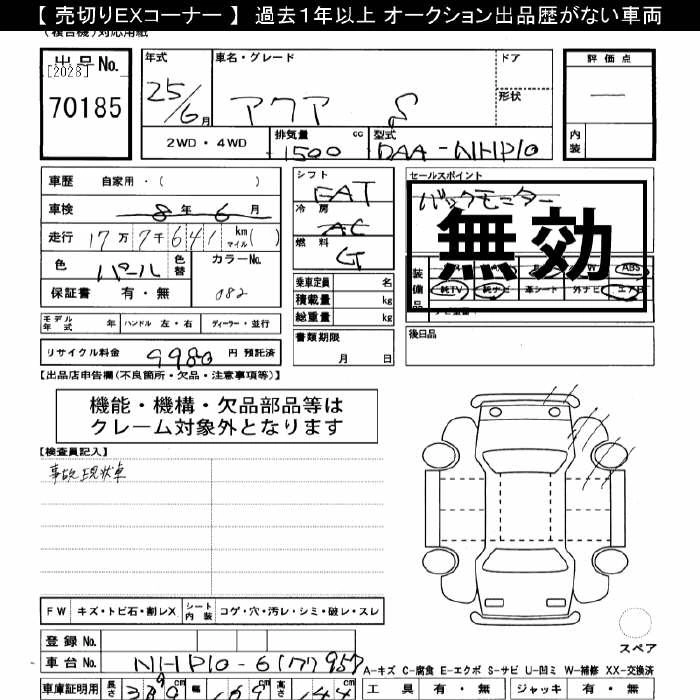 【 売切りEXコーナー 】 過去１年以上 オークション出品歴がない車両
(複合機)対応用紙
出品No. 年式 車名・グレード ドア 評価点
[2028]
70185 25/6月 アクア S 形状 —
2WD・4WD 排気量 1500 cc 型式 DAA-NHP10 内装
車歴 自家用・( ) シフト FAT セールスポイント
車検 8年6月 冷房 AC バックモニター
走行 17万7千641 km マイル( ) 燃料 G
無効
色 パール 色替 カラーNo. 082 乗車定員 名 装備品 ABS
保証書 有・無 積載量 kg 純TV 純ナビ 革シート 外ナビ エアB
モデル年式 年 ハンドル 左・右 ディーラー・並行 総重量 kg 後日品
リサイクル料金 9980 円 預託済 書類期限 月 日
【出品店申告欄(不良箇所・欠品・注意事項等)】
機能・機構・欠品部品等は
クレーム対象外となります
【検査員記入】
事故現状車
FW キズ・トビ石・割レX シート内装 コゲ・穴・汚レ・シミ・破レ・スレ
スペア
登録No.
車台No. NHP10-6177957
A-キズ C-腐食 E-エクボ S-サビ U-凹ミ W-補修 XX-交換済
車庫証明用 長さ 399 cm 幅 169 cm 高さ 144 工具 有・無 ジャッキ 有・無